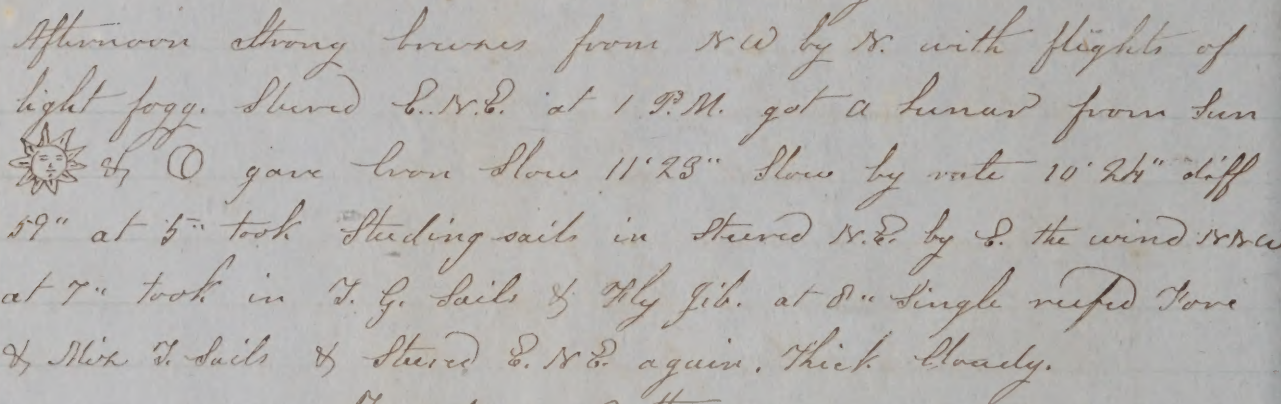 Afternoon Strong breezes from NW by N. with flights of
light fogg. Stered E.N.E. at 1 P.M. got a Lunar from Sun
& gave Cron Slow 11' 23" Slow by rate 10' 24" diff
59" at 5" took Studingsails in Steered N.E. by E. the wind NNW
at 7" took in T. G. Sails & Fly Jib. at 8" Single reefed Fore
& Miz T. Sails & Steered E. NE. again. Thick Cloudy.